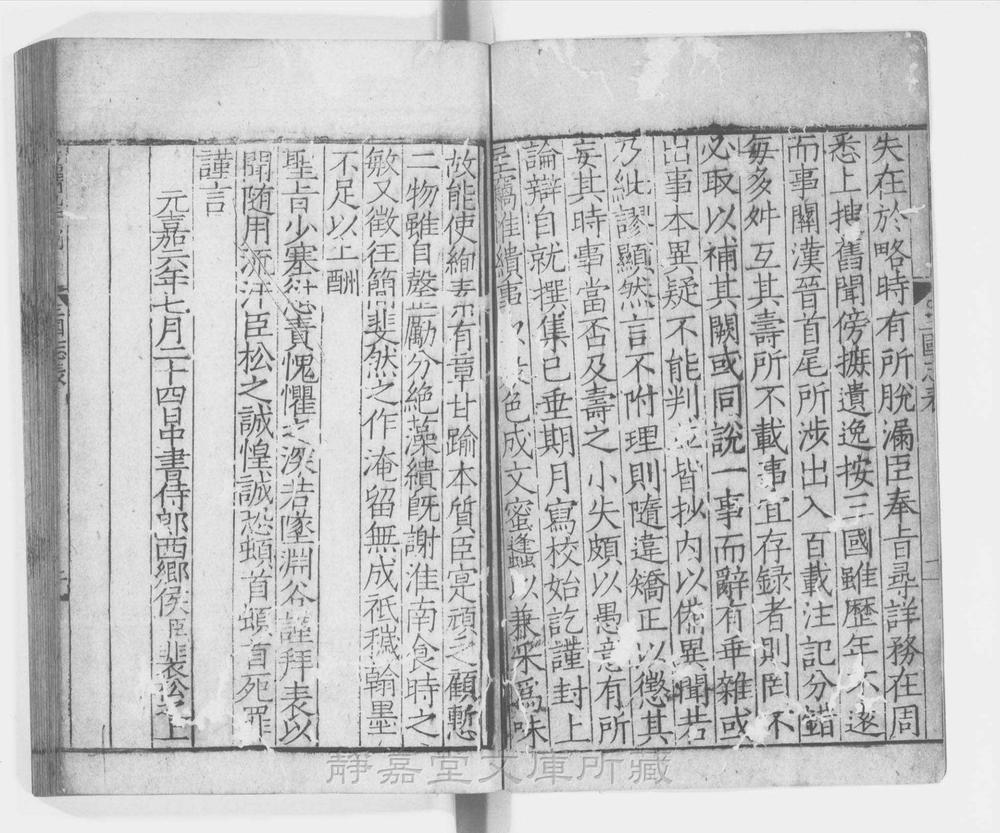 失在於略時有所脫漏臣奉旨尋詳務在周
悉上搜舊聞傍摭遺逸按三國雖歷年不遠
而事關漢晉首尾所涉出入百載注記分錯
每多舛互其壽所不載事宜存録者則罔不
必取以補其闕或同說一事而辭有乖雜或
出事本異疑不能判並皆抄内以備異聞若
乃紕謬顯然言不附理則隨違矯正以懲其
妄其時事當否及壽之小失頗以愚意有所
論辯自就撰集已垂期月寫校始訖謹封上
呈竊惟繢事以色成文蜜蠭以兼采爲味
故能使絢素有章甘踰本質臣寔頑乏顧慙
二物雖自罄勵分絶藻繢既謝淮南食時之
敏又微狂簡斐然之作淹留無成祇穢翰墨
不足以上酬
聖旨少塞愆責愧懼之深若墜淵谷謹拜表以
聞隨用流汗臣松之誠惶誠恐頓首頓首死罪
謹言
元嘉六年七月二十四日中書侍郎西鄉侯臣裴松之上
三國志表
靜嘉堂文庫所藏